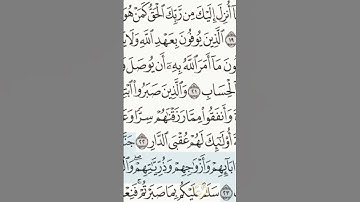 ا أُنزِلَ إِلَيْكَ مِن رَّبِّكَ ٱلْحَقُّ كَمَنْ هُوَ
١٩ ٱلَّذِينَ يُوفُونَ بِعَهْدِ ٱللَّهِ وَلَا
ونَ مَآ أَمَرَ ٱللَّهُ بِهِۦٓ أَن يُوصَلَ
ٱلْحِسَابِ ٢١ وَٱلَّذِينَ صَبَرُوا۟ ٱبْتِ
ةَ وَأَنفَقُوا۟ مِمَّا رَزَقْنَٰهُمْ سِرًّا وَعَ
أُو۟لَٰٓئِكَ لَهُمْ عُقْبَى ٱلدَّارِ ٢٢ جَنَّ
ءَابَآئِهِمْ وَأَزْوَٰجِهِمْ وَذُرِّيَّٰتِهِمْ ۖ وَٱلْ
٢٣ سَلَٰمٌ عَلَيْكُم بِمَا صَبَرْتُمْ ۚ فَنِعْ